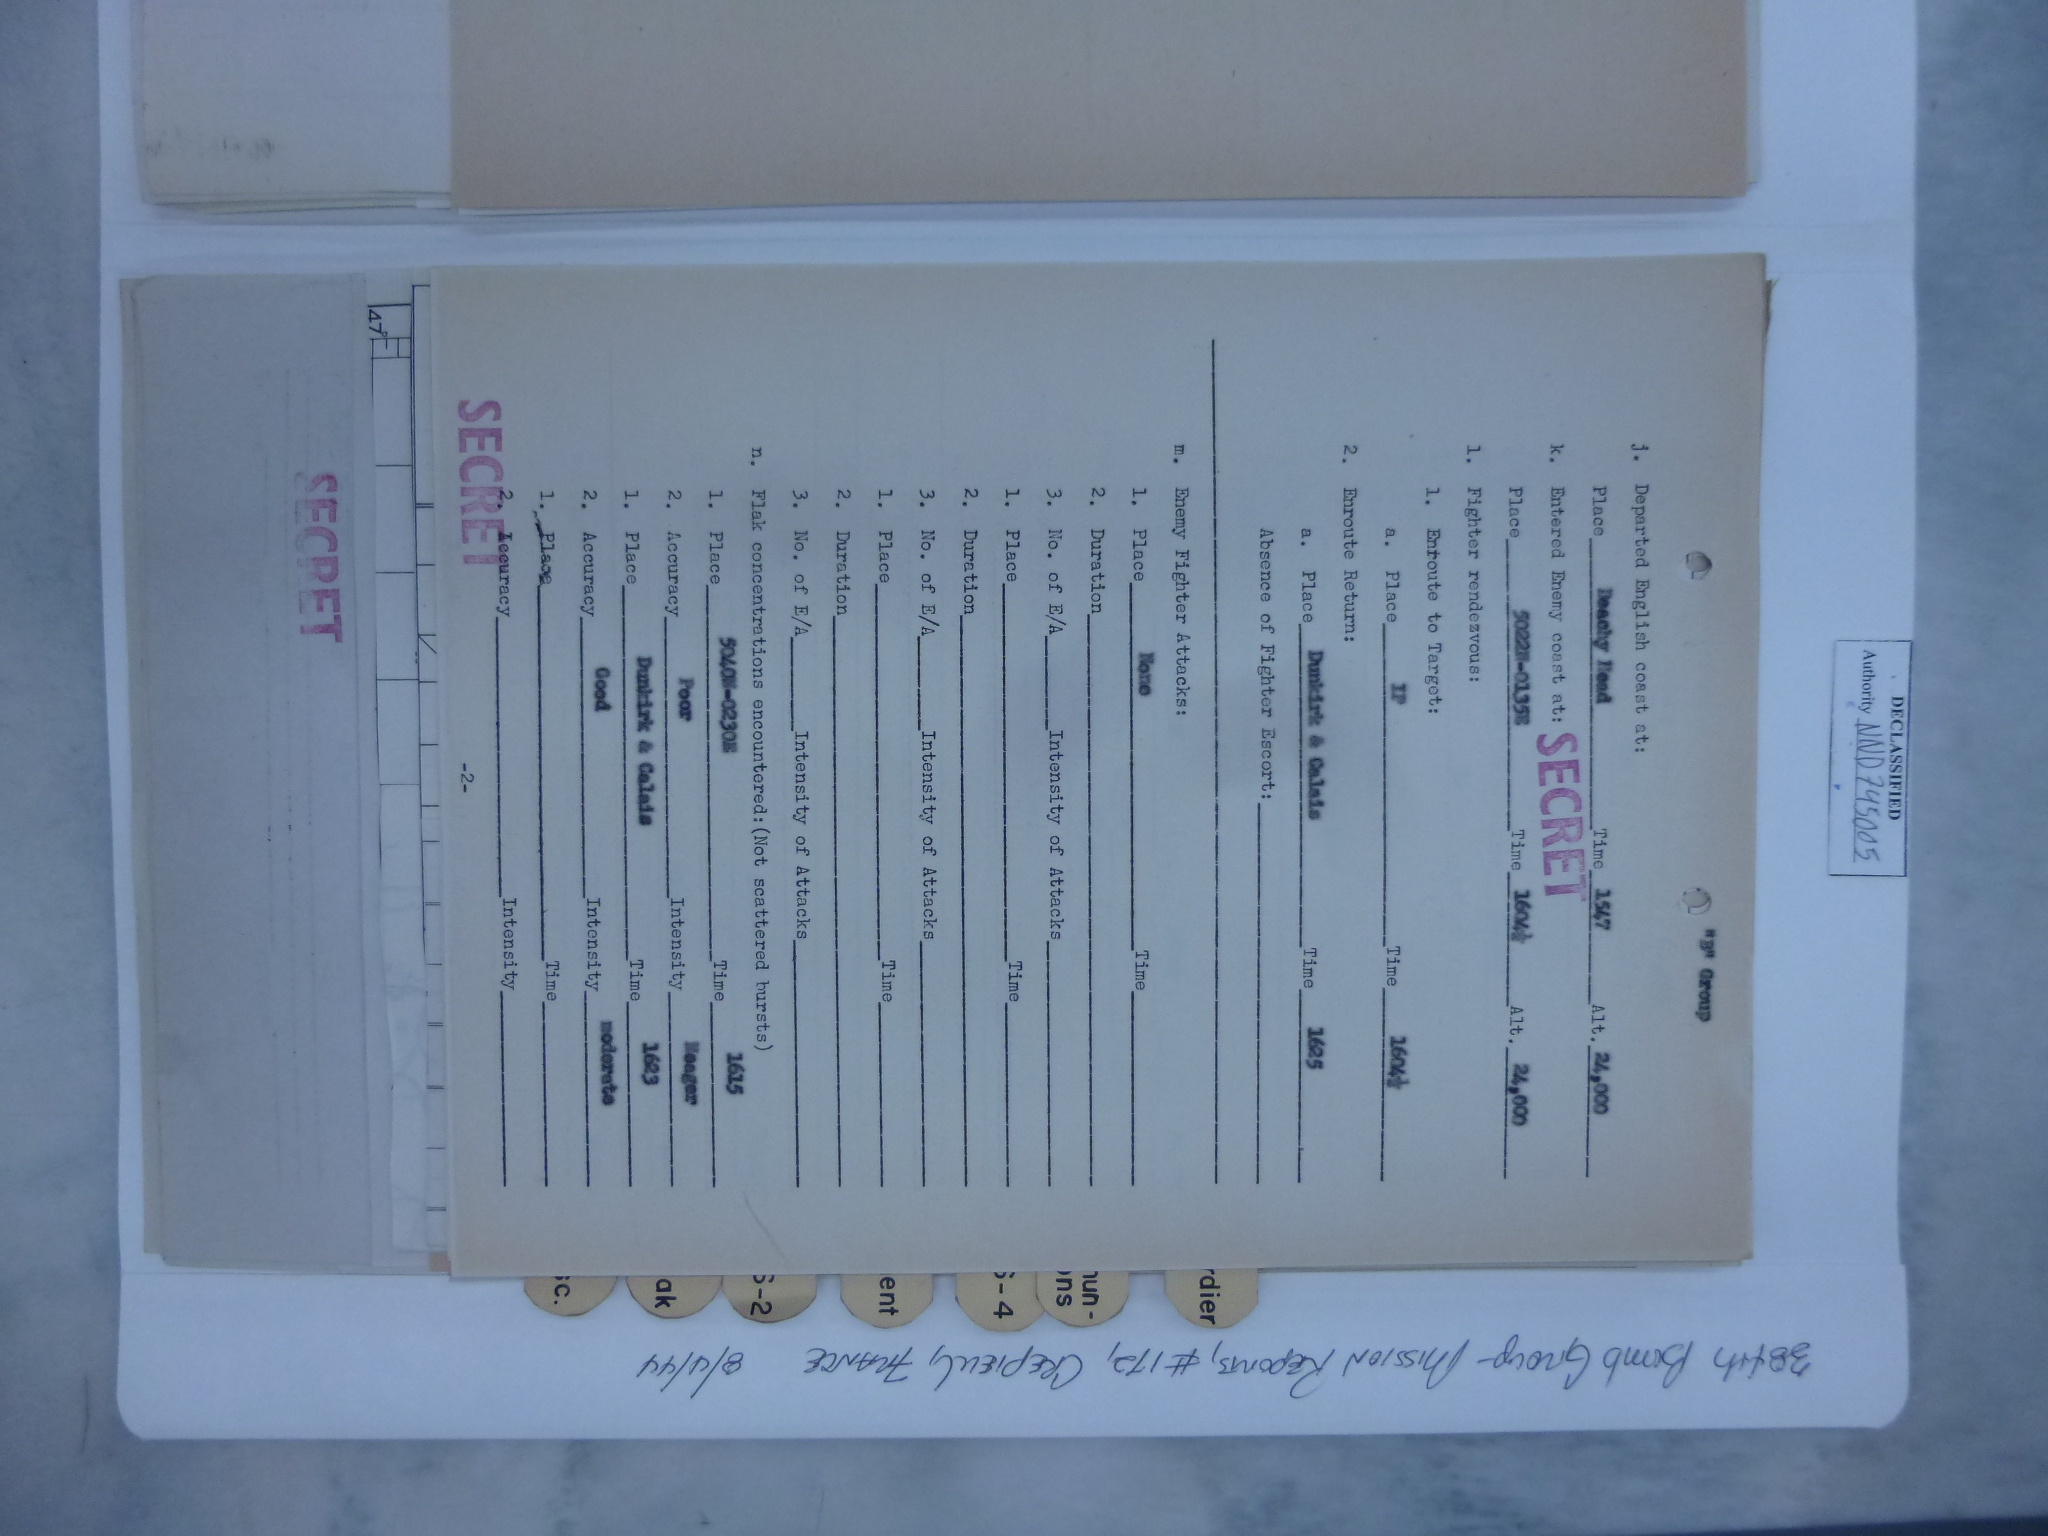 "B" Group
j. Departed English coast at:
Place Beachy Head Time 1547 Alt. 24,000
SECRET
k. Entered Enemy coast at:
Place 5022N-0135E Time 1604½ Alt. 24,000
l. Fighter rendezvous:
1. Enroute to Target:
a. Place IP Time 1604½
2. Enroute Return:
a. Place Dunkirk & Calais Time 1625
Absence of Fighter Escort:
m. Enemy Fighter Attacks:
1. Place None Time
2. Duration
3. No. of E/A Intensity of Attacks
1. Place Time
2. Duration
3. No. of E/A Intensity of Attacks
1. Place Time
2. Duration
3. No. of E/A Intensity of Attacks
n. Flak concentrations encountered:(Not scattered bursts)
1. Place 5040N-0230E Time 1615
2. Accuracy Poor Intensity Meager
1. Place Dunkirk & Calais Time 1623
2. Accuracy Good Intensity moderate
1. Place Time
2. Accuracy Intensity
SECRET
-2-
47°
SECRET
DECLASSIFIED
Authority NND 745005
rdier
mun-
ons
S-4
ent
S-2
ak
sc.
384th Bomb Group - Mission Reports, #172, Crepieul, France 8/4/44